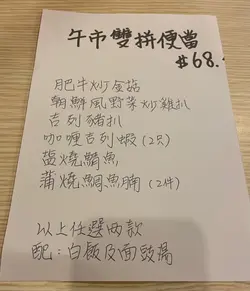 午市雙拼便當
$68.-
肥牛炒金菇
朝鮮風野菜炒雞扒
吉列豬扒
咖喱吉列蝦(2只)
鹽燒鯖魚
蒲燒鯛魚腩(2件)
以上任選兩款
配:白飯及面豉湯